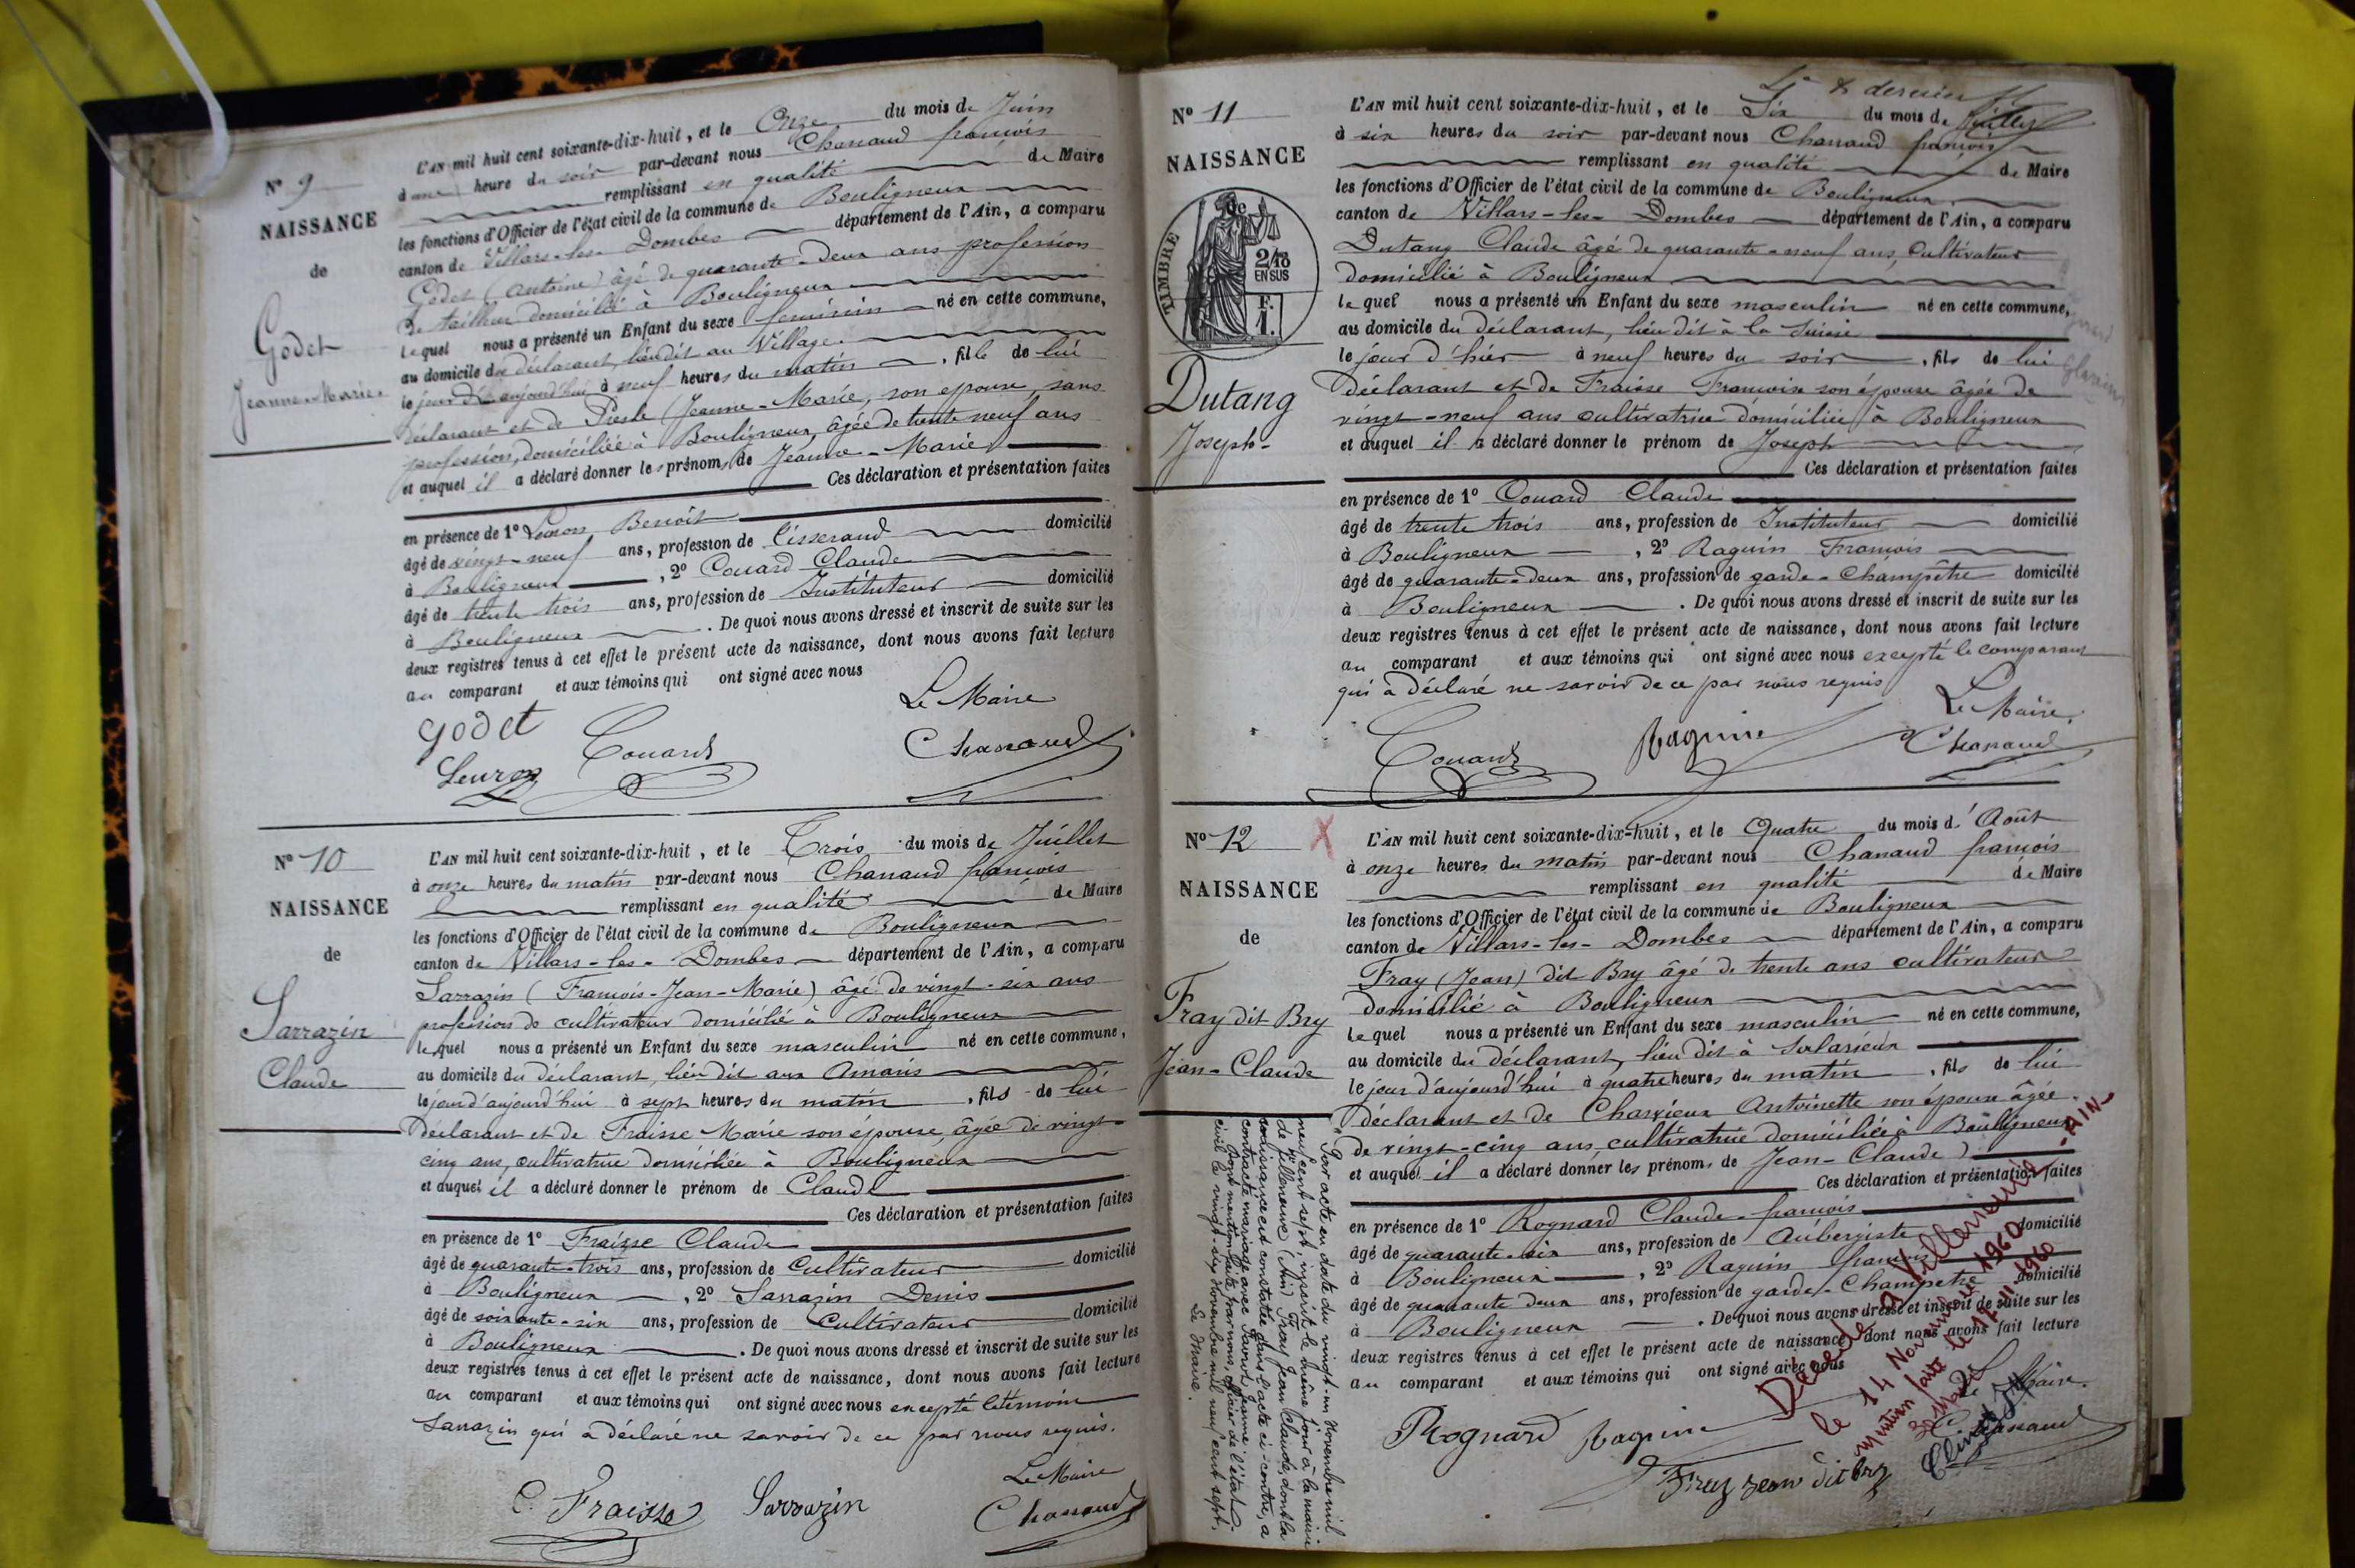 N° 9
NAISSANCE
de
Godet
Jeanne-Marie.
L'AN mil huit cent soixante-dix-huit, et le Onze du mois de Juin
à une heure du soir par-devant nous Chanaud françois
remplissant en qualité de Maire
les fonctions d'Officier de l'état civil de la commune de Bouligneux
canton de Villars-les-Dombes département de l'Ain, a comparu
Godet (Antoine) âgé de quarante-deux ans profession
de tailleur domicilié à Bouligneux
lequel nous a présenté un Enfant du sexe féminin né en cette commune,
au domicile du déclarant, lieu dit au Village.
le jour d'aujourd'hui à neuf heures du matin, fille de lui
déclarant et de (Jeanne-Marie, son épouse, sans
profession, domiciliée à Bouligneux, âgée de trente neuf ans
et auquel il a déclaré donner les prénoms de Jeanne-Marie
Ces déclaration et présentation faites
en présence de 1° Benoît
âgé de vingt-neuf ans, profession de tisserand domicilié
à Bouligneux, 2° Couard Claude
âgé de trente trois ans, profession de Instituteur domicilié
à Bouligneux. De quoi nous avons dressé et inscrit de suite sur les
deux registres tenus à cet effet le présent acte de naissance, dont nous avons fait lecture
au comparant et aux témoins qui ont signé avec nous
Le Maire
Godet Couard Chanaud
N° 10
NAISSANCE
de
Sarrazin
Claude
L'AN mil huit cent soixante-dix-huit, et le Trois du mois de Juillet
à onze heures du matin par-devant nous Chanaud françois
remplissant en qualité de Maire
les fonctions d'Officier de l'état civil de la commune de Bouligneux
canton de Villars-les-Dombes département de l'Ain, a comparu
Sarrazin (François-Jean-Marie) âgé de vingt-six ans
profession de cultivateur domicilié à Bouligneux
lequel nous a présenté un Enfant du sexe masculin né en cette commune,
au domicile du déclarant, lieu dit aux Amaris
le jour d'aujourd'hui à sept heures du matin, fils de lui
déclarant et de Fraisse Marie son épouse, âgée de vingt-
cinq ans, cultivatrice domiciliée à Bouligneux
et auquel il a déclaré donner le prénom de Claude
Ces déclaration et présentation faites
en présence de 1° Fraisse Claude
âgé de quarante-trois ans, profession de Cultivateur domicilié
à Bouligneux, 2° Sarrazin Denis
âgé de soixante-six ans, profession de Cultivateur domicilié
à Bouligneux. De quoi nous avons dressé et inscrit de suite sur les
deux registres tenus à cet effet le présent acte de naissance, dont nous avons fait lecture
au comparant et aux témoins qui ont signé avec nous excepté le témoin
Sarrazin qui a déclaré ne savoir de ce par nous requis.
Le Maire
C. Fraisse Sarrazin Chanaud
4e & dernier f.
N° 11
NAISSANCE
TIMBRE
2/10
EN SUS
F.
1.
Dutang
Joseph-
L'AN mil huit cent soixante-dix-huit, et le Six du mois de Juillet
à six heures du soir par-devant nous Chanaud françois
remplissant en qualité de Maire
les fonctions d'Officier de l'état civil de la commune de Bouligneux
canton de Villars-les-Dombes département de l'Ain, a comparu
Dutang Claude âgé de quarante-neuf ans, cultivateur
domicilié à Bouligneux
lequel nous a présenté un Enfant du sexe masculin né en cette commune,
au domicile du déclarant, lieu dit à la Suisse
le jour d'hier à neuf heures du soir, fils de lui
déclarant et de Fraisse Françoise son épouse âgée de
vingt-neuf ans cultivatrice domiciliée à Bouligneux
et auquel il a déclaré donner le prénom de Joseph
Ces déclaration et présentation faites
en présence de 1° Couard Claude
âgé de trente trois ans, profession de Instituteur domicilié
à Bouligneux, 2° Raguin François
âgé de quarante-deux ans, profession de garde-Champêtre domicilié
à Bouligneux. De quoi nous avons dressé et inscrit de suite sur les
deux registres tenus à cet effet le présent acte de naissance, dont nous avons fait lecture
au comparant et aux témoins qui ont signé avec nous excepté le comparant
qui a déclaré ne savoir de ce par nous requis
Le Maire,
Couard Raguin Chanaud
N° 12 X
NAISSANCE
de
Fray dit Bry
Jean-Claude
L'AN mil huit cent soixante-dix-huit, et le Quatre du mois d'Août
à onze heures du matin par-devant nous Chanaud françois
remplissant en qualité de Maire
les fonctions d'Officier de l'état civil de la commune de Bouligneux
canton de Villars-les-Dombes département de l'Ain, a comparu
Fray (Jean) dit Bry âgé de trente ans cultivateur
domicilié à Bouligneux
lequel nous a présenté un Enfant du sexe masculin né en cette commune,
au domicile du déclarant, lieu dit à
le jour d'aujourd'hui à quatre heures du matin, fils de lui
déclarant et de Charvieux Antoinette son épouse âgée
de vingt-cinq ans, cultivatrice domiciliée à Bouligneux
et auquel il a déclaré donner les prénoms de Jean-Claude
Ces déclaration et présentation faites
en présence de 1° Rognard Claude-françois
âgé de quarante-six ans, profession de Aubergiste domicilié
à Bouligneux, 2° Raguin françois
âgé de quarante deux ans, profession de garde-Champêtre domicilié
à Bouligneux. De quoi nous avons dressé et inscrit de suite sur les
deux registres tenus à cet effet le présent acte de naissance dont nous avons fait lecture
au comparant et aux témoins qui ont signé avec nous
Le Maire.
Rognard Raguin Chanaud
Fray Jean dit bry
Par acte en date du vingt-un Novembre mil
neuf cent sept, inscrit le même jour à la mairie
de Villeneuve (Ain) Fray Jean Claude, dont la
naissance est constatée dans l'acte ci-contre, a
contracté mariage avec Jeanne
Dont mention faite par nous, officier de l'état
civil le vingt-six Novembre mil neuf cent sept.
Le Maire.
Décédé à -AIN-
le 14 Novembre 1960
mention faite le 17-11-1960
Le Maire